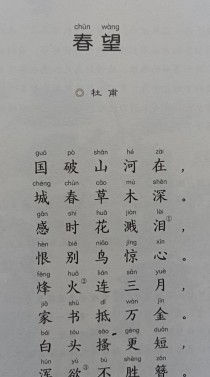 chūn wàng
春 望
◎ 杜 甫
guó pò shān hé zài
国 破 山 河 在，
chéng chūn cǎo mù shēn
城 春 草 木 深。
gǎn shí huā jiàn lèi
感 时 花 溅 泪①，
hèn bié niǎo jīng xīn
恨 别 鸟 惊 心。
fēng huǒ lián sān yuè
烽 火② 连 三 月，
jiā shū dǐ wàn jīn
家 书 抵 万 金。
bái tóu sāo gèng duǎn
白 头 搔 更 短，
hún yù bù shèng zān
浑 欲③ 不 胜 簪。